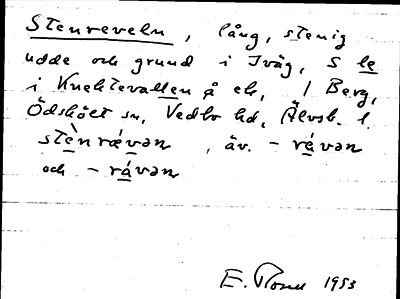 Stenreveln, lång, stenig
udde och grund i Iväg, S le
i Knektevallen å ek, / Berg,
Ödskölt sn, Vedbo hd, Älvsb. l.
stènrævən, äv. - révən
och - rávən
E. 1953